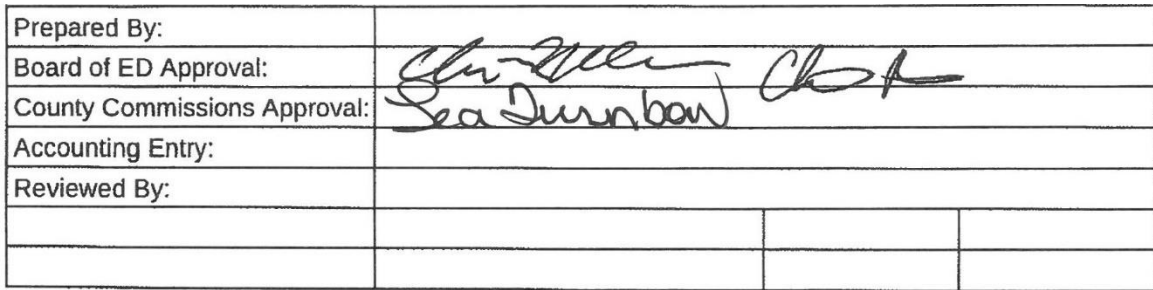 Prepared By:
Board of ED Approval:
County Commissions Approval: Lea Turnbow
Accounting Entry:
Reviewed By: